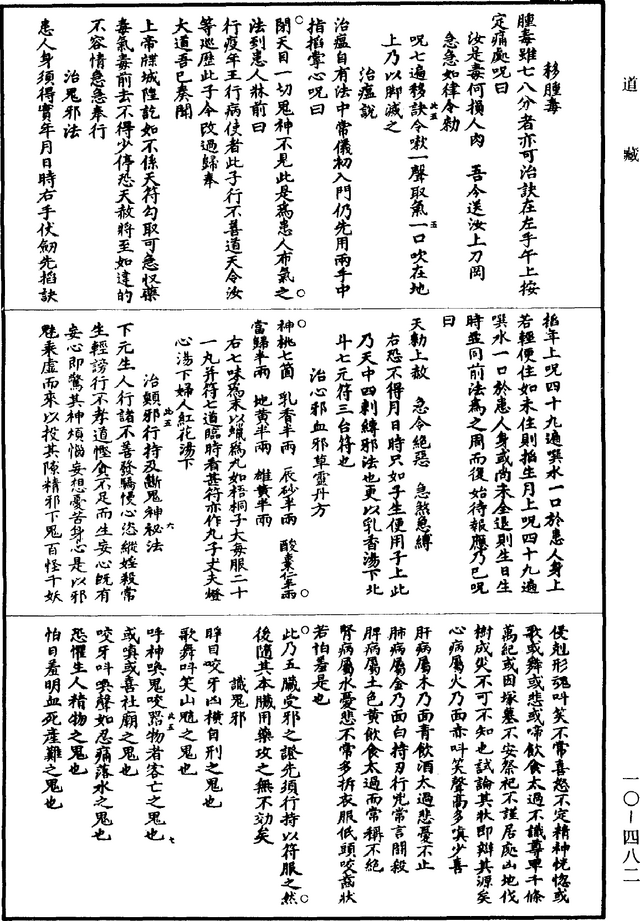 道藏
移腫毒
腫毒雖七八分者亦可治訣在左手午上按
定痛處呪曰
汝是毒何損人肉　吾今送汝上刀岡
急急如律令勑
呪七遍移訣令嗽一聲取氣一口吹在地
上乃以脚滅之
治瘟說
治瘟自有法中常儀初入門仍先用兩手中
指掐掌心呪曰
閉天目一切鬼神不見此是爲患人布氣之
法到患人牀前曰
行疫年王行病使者此子行不善道天令汝
等巡歷此子今改過歸奉
大道吾已奏聞
上帝牒城隍訖如不係天符勾取可急收藥
毒氣毒前去不得少停恐天赦將至如違的
不容情急急奉行
治鬼邪法
患人身須得實年月日時右手伏劒先掐訣
掐年上呪四十九遍噀水一口於患人身上
若輕便住如未住則掐生月上呪四十九遍
噀水一口於患人身或尚未全退則生日生
時並同前法爲之周而復始待報應乃已呪
曰
天勑上赦　急令絕惡　急煞急縛
右恐不得月日時只如子生便用子上此
乃天中四剌縛邪法也更以乳香湯下北
斗七元符三台符也
治心邪血邪草靈丹方
神桃七箇　乳香半兩　辰砂半兩　酸棗仁半兩
當歸半兩　地黃半兩　雄黃半兩
右七味爲末以蠟爲丸如梧桐子大每服二十
一丸并符七道臨時看甚符亦作丸子丈夫燈
心湯下婦人紅花湯下
治顛邪行持及斷鬼神祕法
下元生人行諸不善發驕慢心恣縱婬殺常
生輕謗行不孝道慳貪不足而生妄心既有
妄心即驚其神煩惱妄想憂苦身心是以邪
魅乘虛而來以投其隙精邪下鬼百怪千妖
侵剋形魂叫笑不常喜怒不定精神恍惚或
歌或舞或悲或啼飲食太過不識尊卑千條
萬紀或因塚墓不安祭祀不謹居處山地伐
樹成災不可不知也試論其狀即辯其源矣
心病屬火乃面赤叫笑聲高多嗔少喜
肝病屬木乃面青飲酒太過悲憂不止
肺病屬金乃面白持刃行兇常言閗殺
脾病屬土色黃飲食太過而常稱不絕
腎病屬水憂悲不常多拆衣服低頭咬齒狀
若怕羞是也
此乃五臟受邪之證先須行持以符服之然
後隨其本臟用藥攻之無不効矣
識鬼邪
睜目咬牙凶橫自刑之鬼也
歌舞叫笑山魈之鬼也
呼神喚鬼咬器物者客亡之鬼也
或嗔或喜社廟之鬼也
咬牙叫喚聲如忍痛落水之鬼也
恐懼生人精物之鬼也
怕日羞明血死產難之鬼也
一〇－四八二